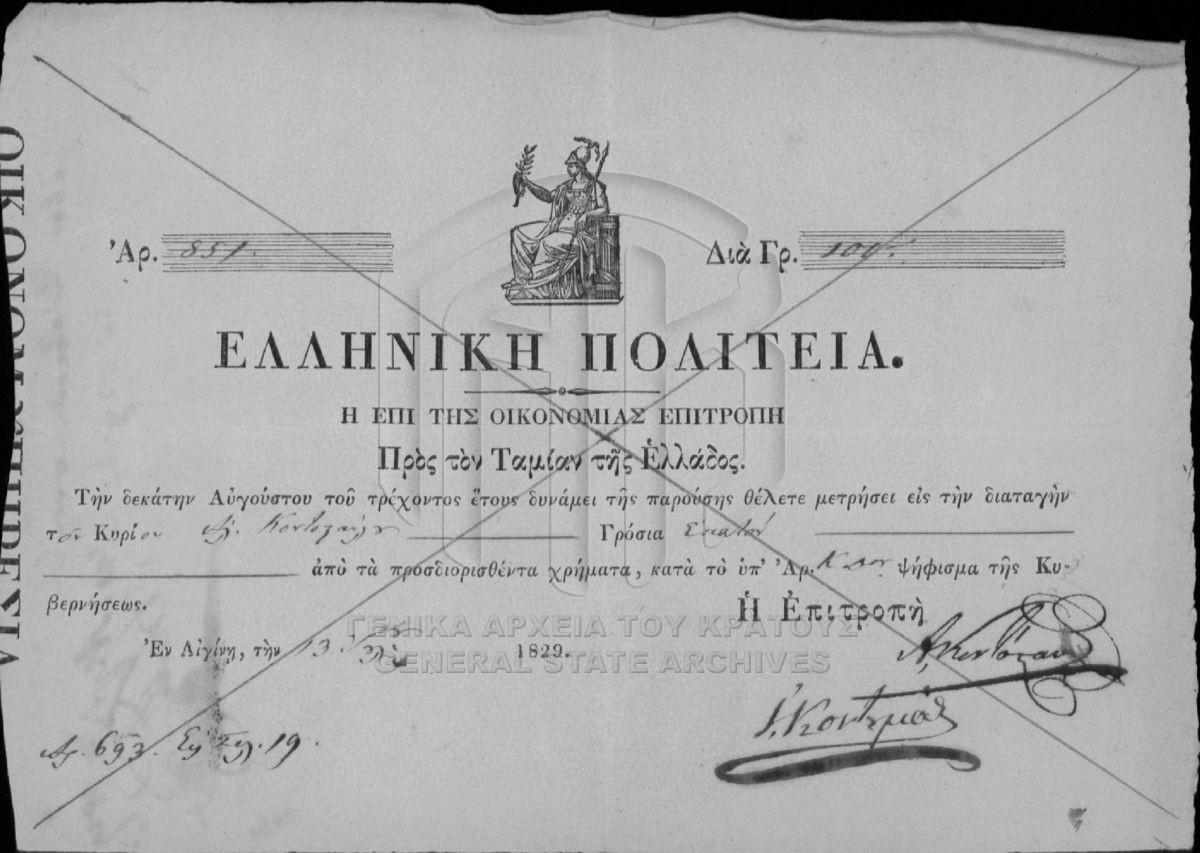 ΟΙΚΟΝΟΜ
Ἀρ. 851.
Διὰ Γρ. 100
ΕΛΛΗΝΙΚΗ ΠΟΛΙΤΕΙΑ.
Η ΕΠΙ ΤΗΣ ΟΙΚΟΝΟΜΙΑΣ ΕΠΙΤΡΟΠΗ
Πρὸς τὸν Ταμίαν τῆς Ἑλλάδος.
Τὴν δεκάτην Αὐγούστου τοῦ τρέχοντος ἔτους δυνάμει τῆς παρούσης θέλετε μετρήσει εἰς τὴν διαταγὴν
τοῦ Κυρίου Ἀ. Γρόσια ἑκατόν
ἀπὸ τὰ προσδιορισθέντα χρήματα, κατὰ τὸ ὑπ' Ἀρ. ψήφισμα τῆς Κυ-
βερνήσεως.
Ἡ Ἐπιτροπὴ
Ἐν Αἰγίνῃ, τὴν 13 1829.
Ἀρ. 693. 19.
ΓΕΝΙΚΑ ΑΡΧΕΙΑ ΤΟΥ ΚΡΑΤΟΥΣ
GENERAL STATE ARCHIVES